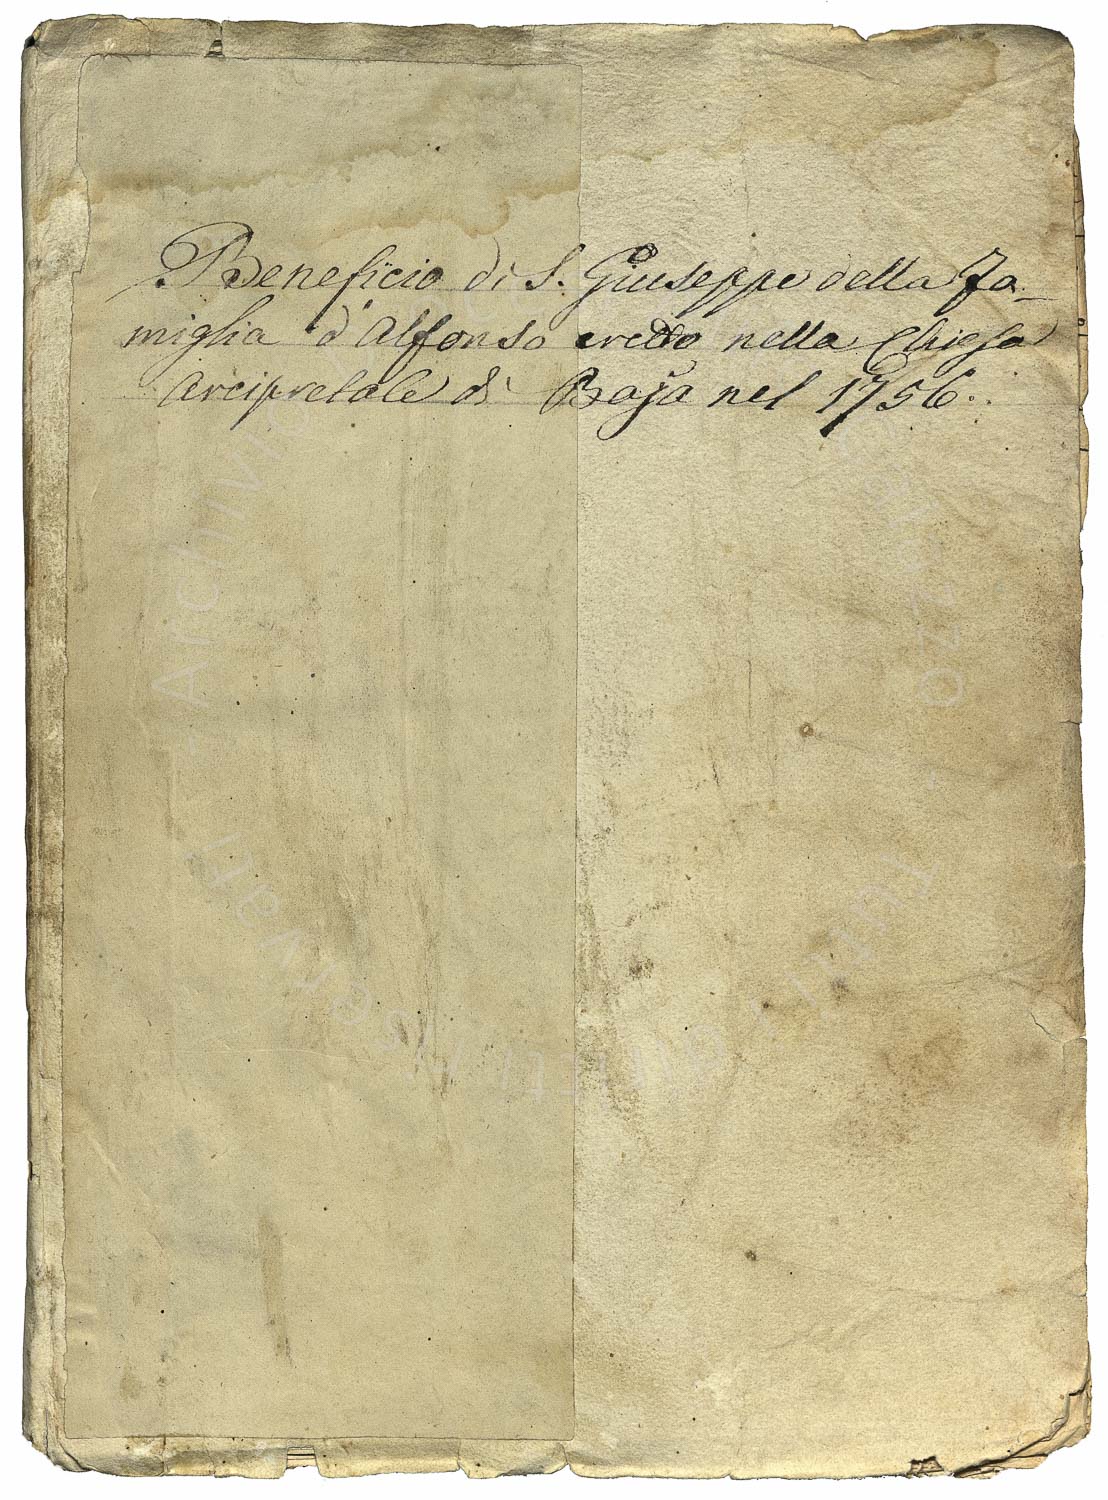 Beneficio di S. Giuseppe della Fa-
miglia d'Alfonso eretto nella Chiesa
Arcipretale di Baja nel 1756.
Archivio
Tutti i diritti riservati